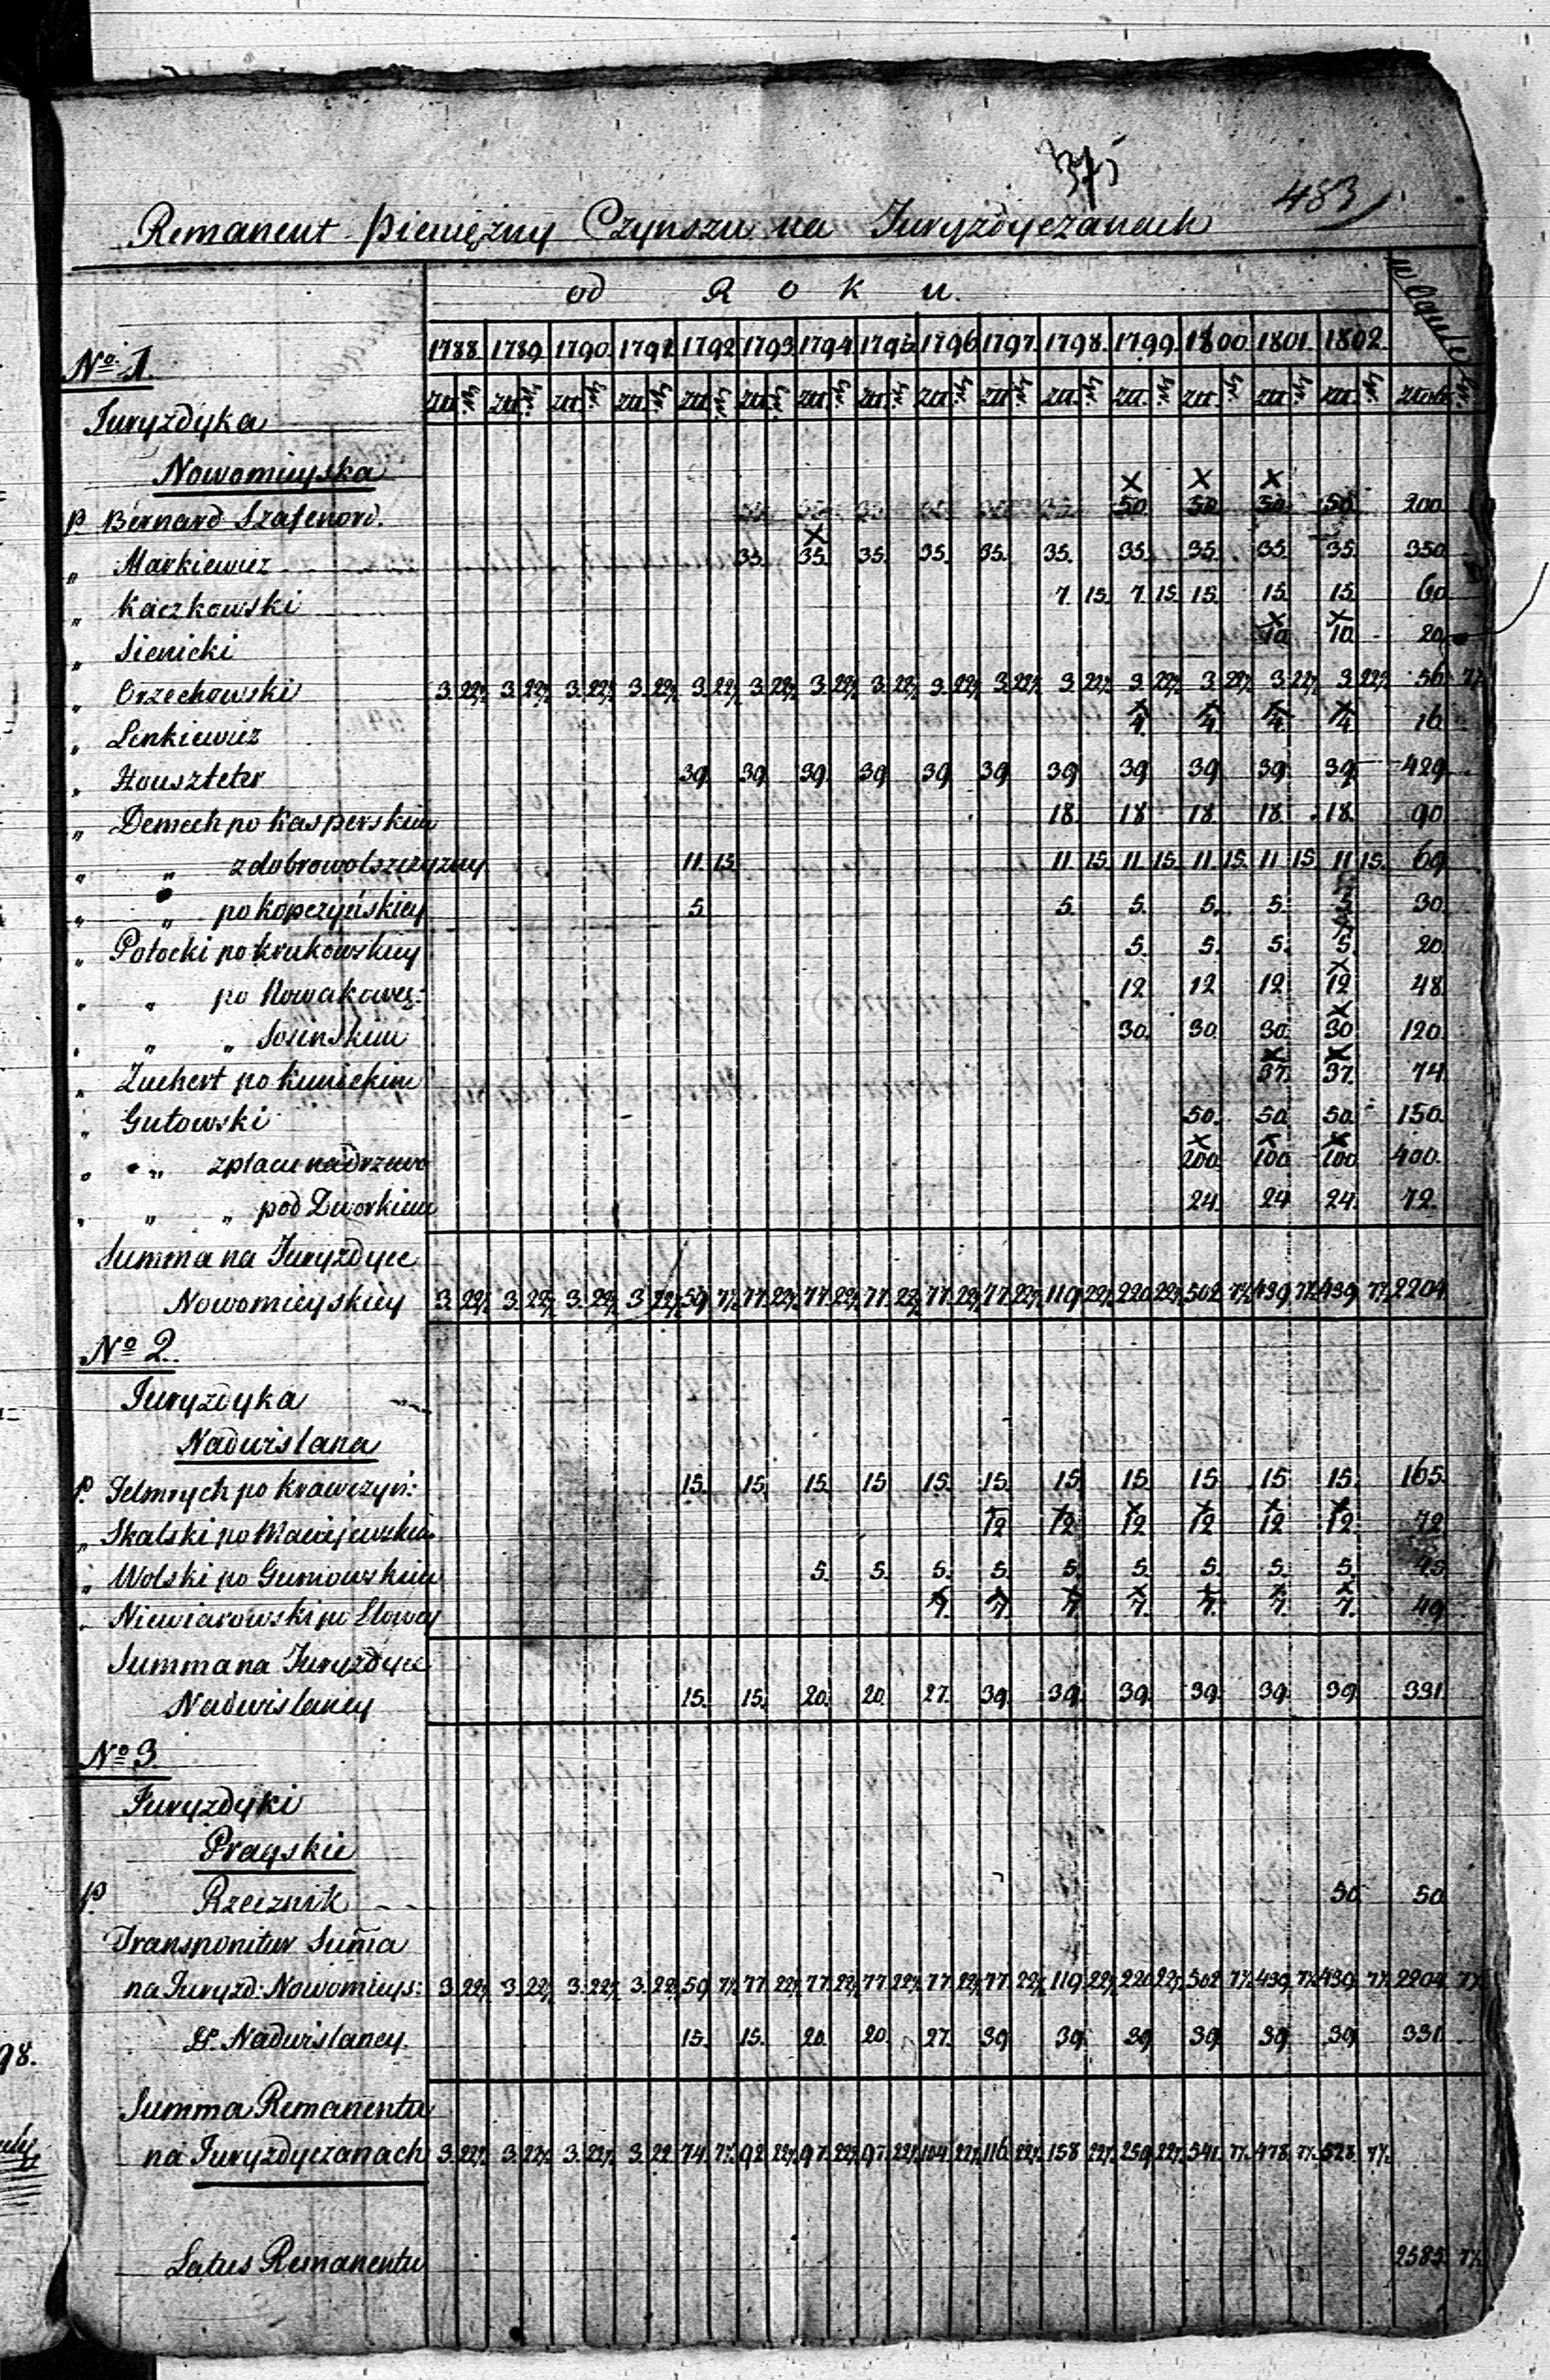 375
483
Remanent Pieniężny Czynszu na Juryzdyczanach
od Roku. w Ogule
1788 1789 1790 1791 1792 1793 1794 1795 1796 1797 1798 1799 1800 1801 1802
No. 1
Złł gr. Złł gr. Złł gr. Złł gr. Złł gr. Złł gr. Złł gr. Złł gr. Złł gr. Złł gr. Złł gr. Złł gr. Złł gr. Złł gr. Złł gr. Złote gr.
Juryzdyka
Nowomieyska
x x x
P. Bernard 50. 50. 50. 50. 200
x
„ Markiewicz 35. 35. 35. 35. 35. 35. 35. 35. 35. 35. 350
„ Kaczkowski 7. 15. 7. 15. 15. 15. 15. 60
x x
„ Sienicki 10 10 20
„ Orzechowski 3. 22½ 3. 22½ 3. 22½ 3. 22½ 3. 22½ 3. 22½ 3. 22½ 3. 22½ 3. 22½ 3. 22½ 3. 22½ 3. 22½ 3. 22½ 3. 22½ 3. 22½ 56 7½
x x x x
„ Linkiewicz 4. 4. 4. 4. 16
„ Houszteter 39. 39. 39. 39. 39. 39. 39. 39. 39. 39. 39. 429
„ Demech po Kasperskim 18. 18. 18. 18. 18. 90
„ „ z dobrowolszczyzny 11. 15. 11. 15. 11. 15. 11. 15. 11 15. 11 15. 69
„ „ po Kopczyńskiey 5. 5. 5. 5. 5. 5. 30.
„ Potocki po Krukowskiey 5. 5. 5. 5. 20
„ „ po Nowakowey: 12 12 12 12 48
„ „ „ Sosinskim 30. 30. 30. 30 120.
x x
„ Zuchert po Kunickim 37. 37. 74
„ Gutowski 50. 50. 50. 150.
x x x
„ „ z placu na drzewo 200. 100 100 400.
„ „ „ pod Dworkiem 24. 24 24. 72.
Summa na Juryzdyce
Nowomieyskiey 3. 22½ 3. 22½ 3. 22½ 3 22½ 59 7½ 77. 22½ 77. 22½ 77. 22½ 77. 22½ 77. 22½ 119 22½ 220 22½ 502 7½ 439 7½ 439 7½ 2204
No 2.
Juryzdyka
Nadwislana
P. po Krawczyń: 15. 15. 15. 15 15. 15. 15. 15. 15 15 15. 165.
x x x x x x
„ Skalski po Maciejewskim 12 12 12 12 12 12 72
„ Wolski po Gumowskim 5. 5. 5. 5. 5. 5. 5. 5. 5. 45
x x x x x x x
„ Niewiarowski po 7. 7. 7. 7. 7. 7. 7. 49
Summa na Juryzdyce
Nadwislaney 15. 15. 20. 20 27. 39. 39. 39. 39. 39. 39 331.
No 3.
Juryzdyki
Prayskie
P. Rzecznik 50 50
Transponitur Sum̃a
na Juryzd: Nowomieys: 3. 22½ 3. 22½ 3. 22½ 3. 22½ 59 7½ 77. 22½ 77. 22½ 77. 22½ 77. 22½ 77. 22½ 119 22½ 220 22½ 502 7½ 439 7½ 439 7½ 2204 7½
D. Nadwislaney. 15. 15. 20. 20. 27. 39 39. 39 39. 39. 39 331.
Summa Remanentu
na Juryzdyczanach 3. 22½ 3. 22½ 3. 22½ 3. 22 74. 7½ 92 22½ 97. 22½ 97. 22½ 104 22½ 116. 22½ 158 22½ 259 22½ 541. 7½ 478. 7½ 528. 7½
Latus Remanentu 2585. 7½
98.